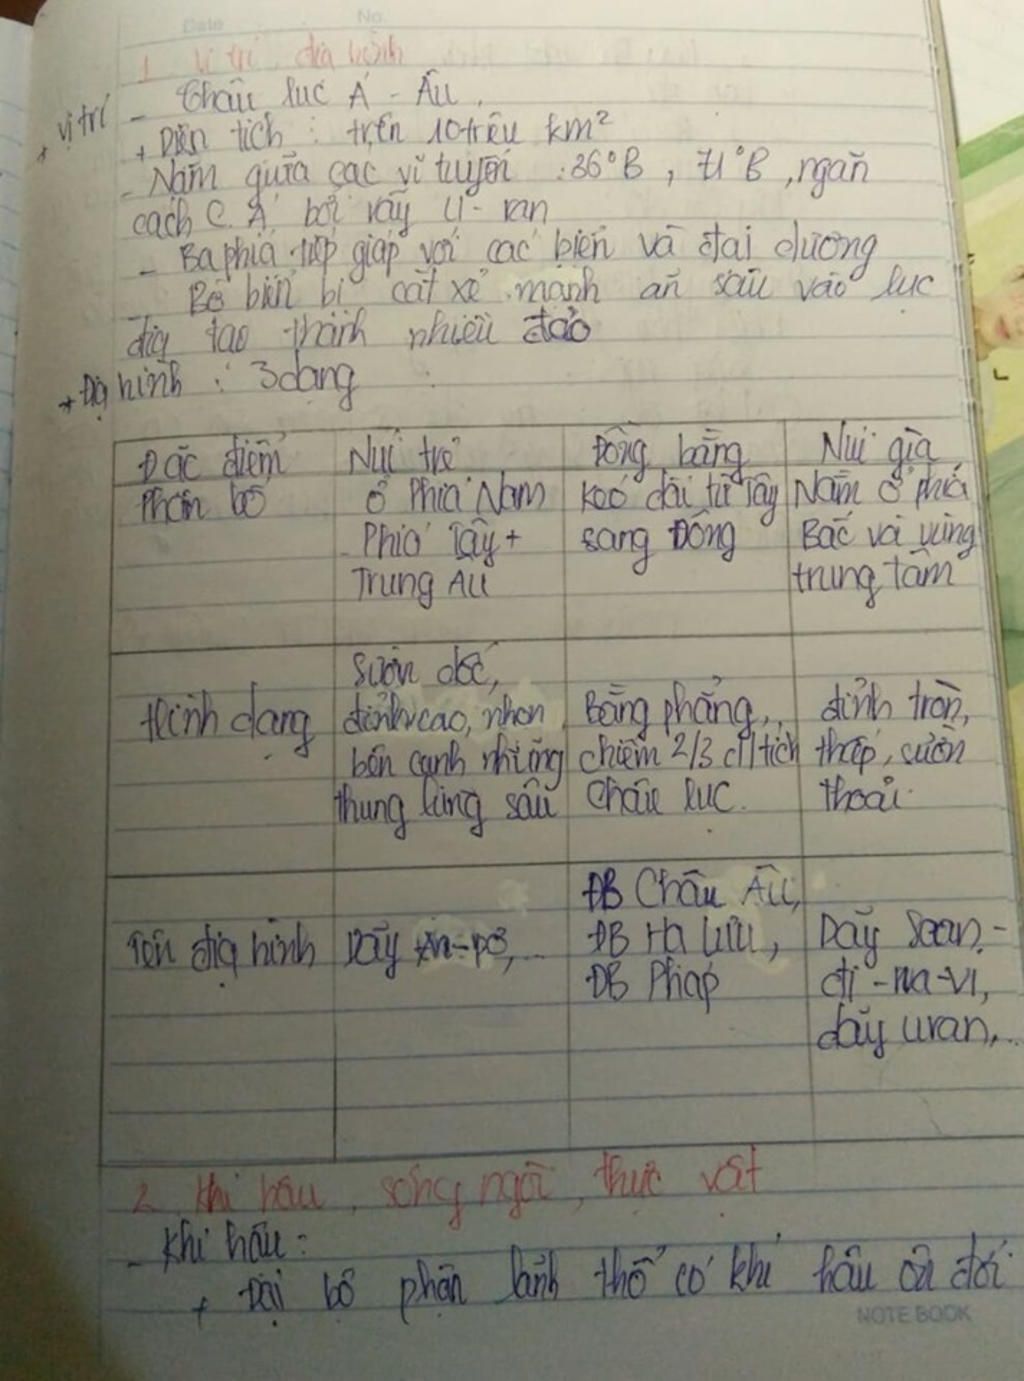 Date No.
1. Vị trí, địa hình
+ Vị trí - Châu lục Á - Âu.
+ Diện tích : trên 10 triệu km²
- Nằm giữa các vĩ tuyến : 36°B, 71°B, ngăn
cách C. Á bởi dãy U-ran
- Ba phía tiếp giáp với các biển và đại dương
- Bờ biển bị cắt xẻ mạnh ăn sâu vào lục
địa tạo thành nhiều đảo
+ Địa hình : 3 dạng
Đặc điểm Núi trẻ Đồng bằng Núi già
Phân bố ở Phía Nam Kéo dài từ Tây Nằm ở phía
Phía Tây + sang Đông Bắc và vùng
Trung Âu trung tâm
Sườn dốc,
Hình dạng đỉnh cao, nhọn, Bằng phẳng, đỉnh tròn,
bên cạnh những chiếm 2/3 d/tích thấp, sườn
thung lũng sâu Châu lục. thoải.
ĐB Châu Âu,
Tên địa hình Dãy An-pơ,... ĐB Hạ lưu, Dãy Scan-
ĐB Pháp đi-na-vi,
dãy uran,...
2. Khí hậu, sông ngòi, thực vật
- Khí hậu :
+ Đại bộ phận lãnh thổ có khí hậu ôn đới
NOTE BOOK